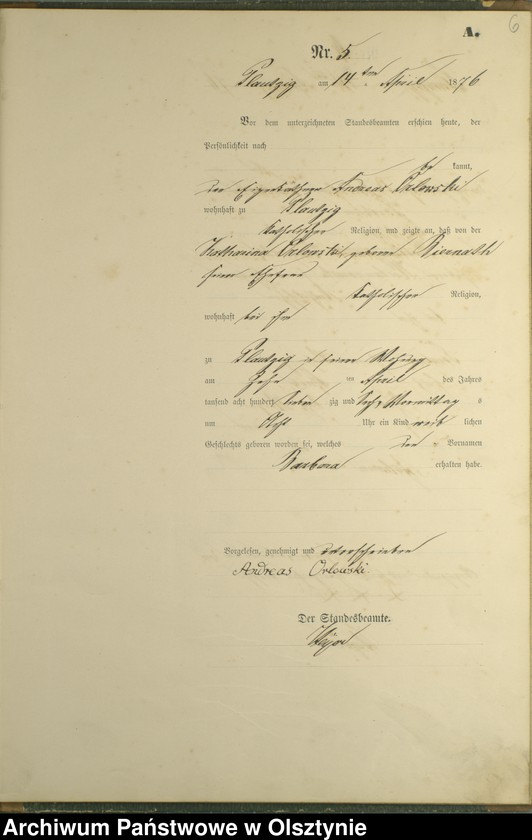 6
A.
Nr. 5
Plautzig am 14ten April 1876
Vor dem unterzeichneten Standesbeamten erschien heute, der
Persönlichkeit nach
be kannt,
der Eigenkäthner Andreas Orlowski
wohnhaft zu Plautzig
katholischer Religion, und zeigte an, daß von der
Katharina Orlowski, geboren
seiner Ehefrau
katholischer Religion,
wohnhaft bei ihm
zu Plautzig in seiner Wohnung
am Zehn ten April des Jahres
tausend acht hundert sieben zig und sechs Vormittag s
um Acht Uhr ein Kind weib lichen
Geschlechts geboren worden sei, welches den Vornamen
Barbara erhalten habe.
Vorgelesen, genehmigt und unterschrieben
Andreas Orlowski.
Der Standesbeamte.
Archiwum Państwowe w Olsztynie